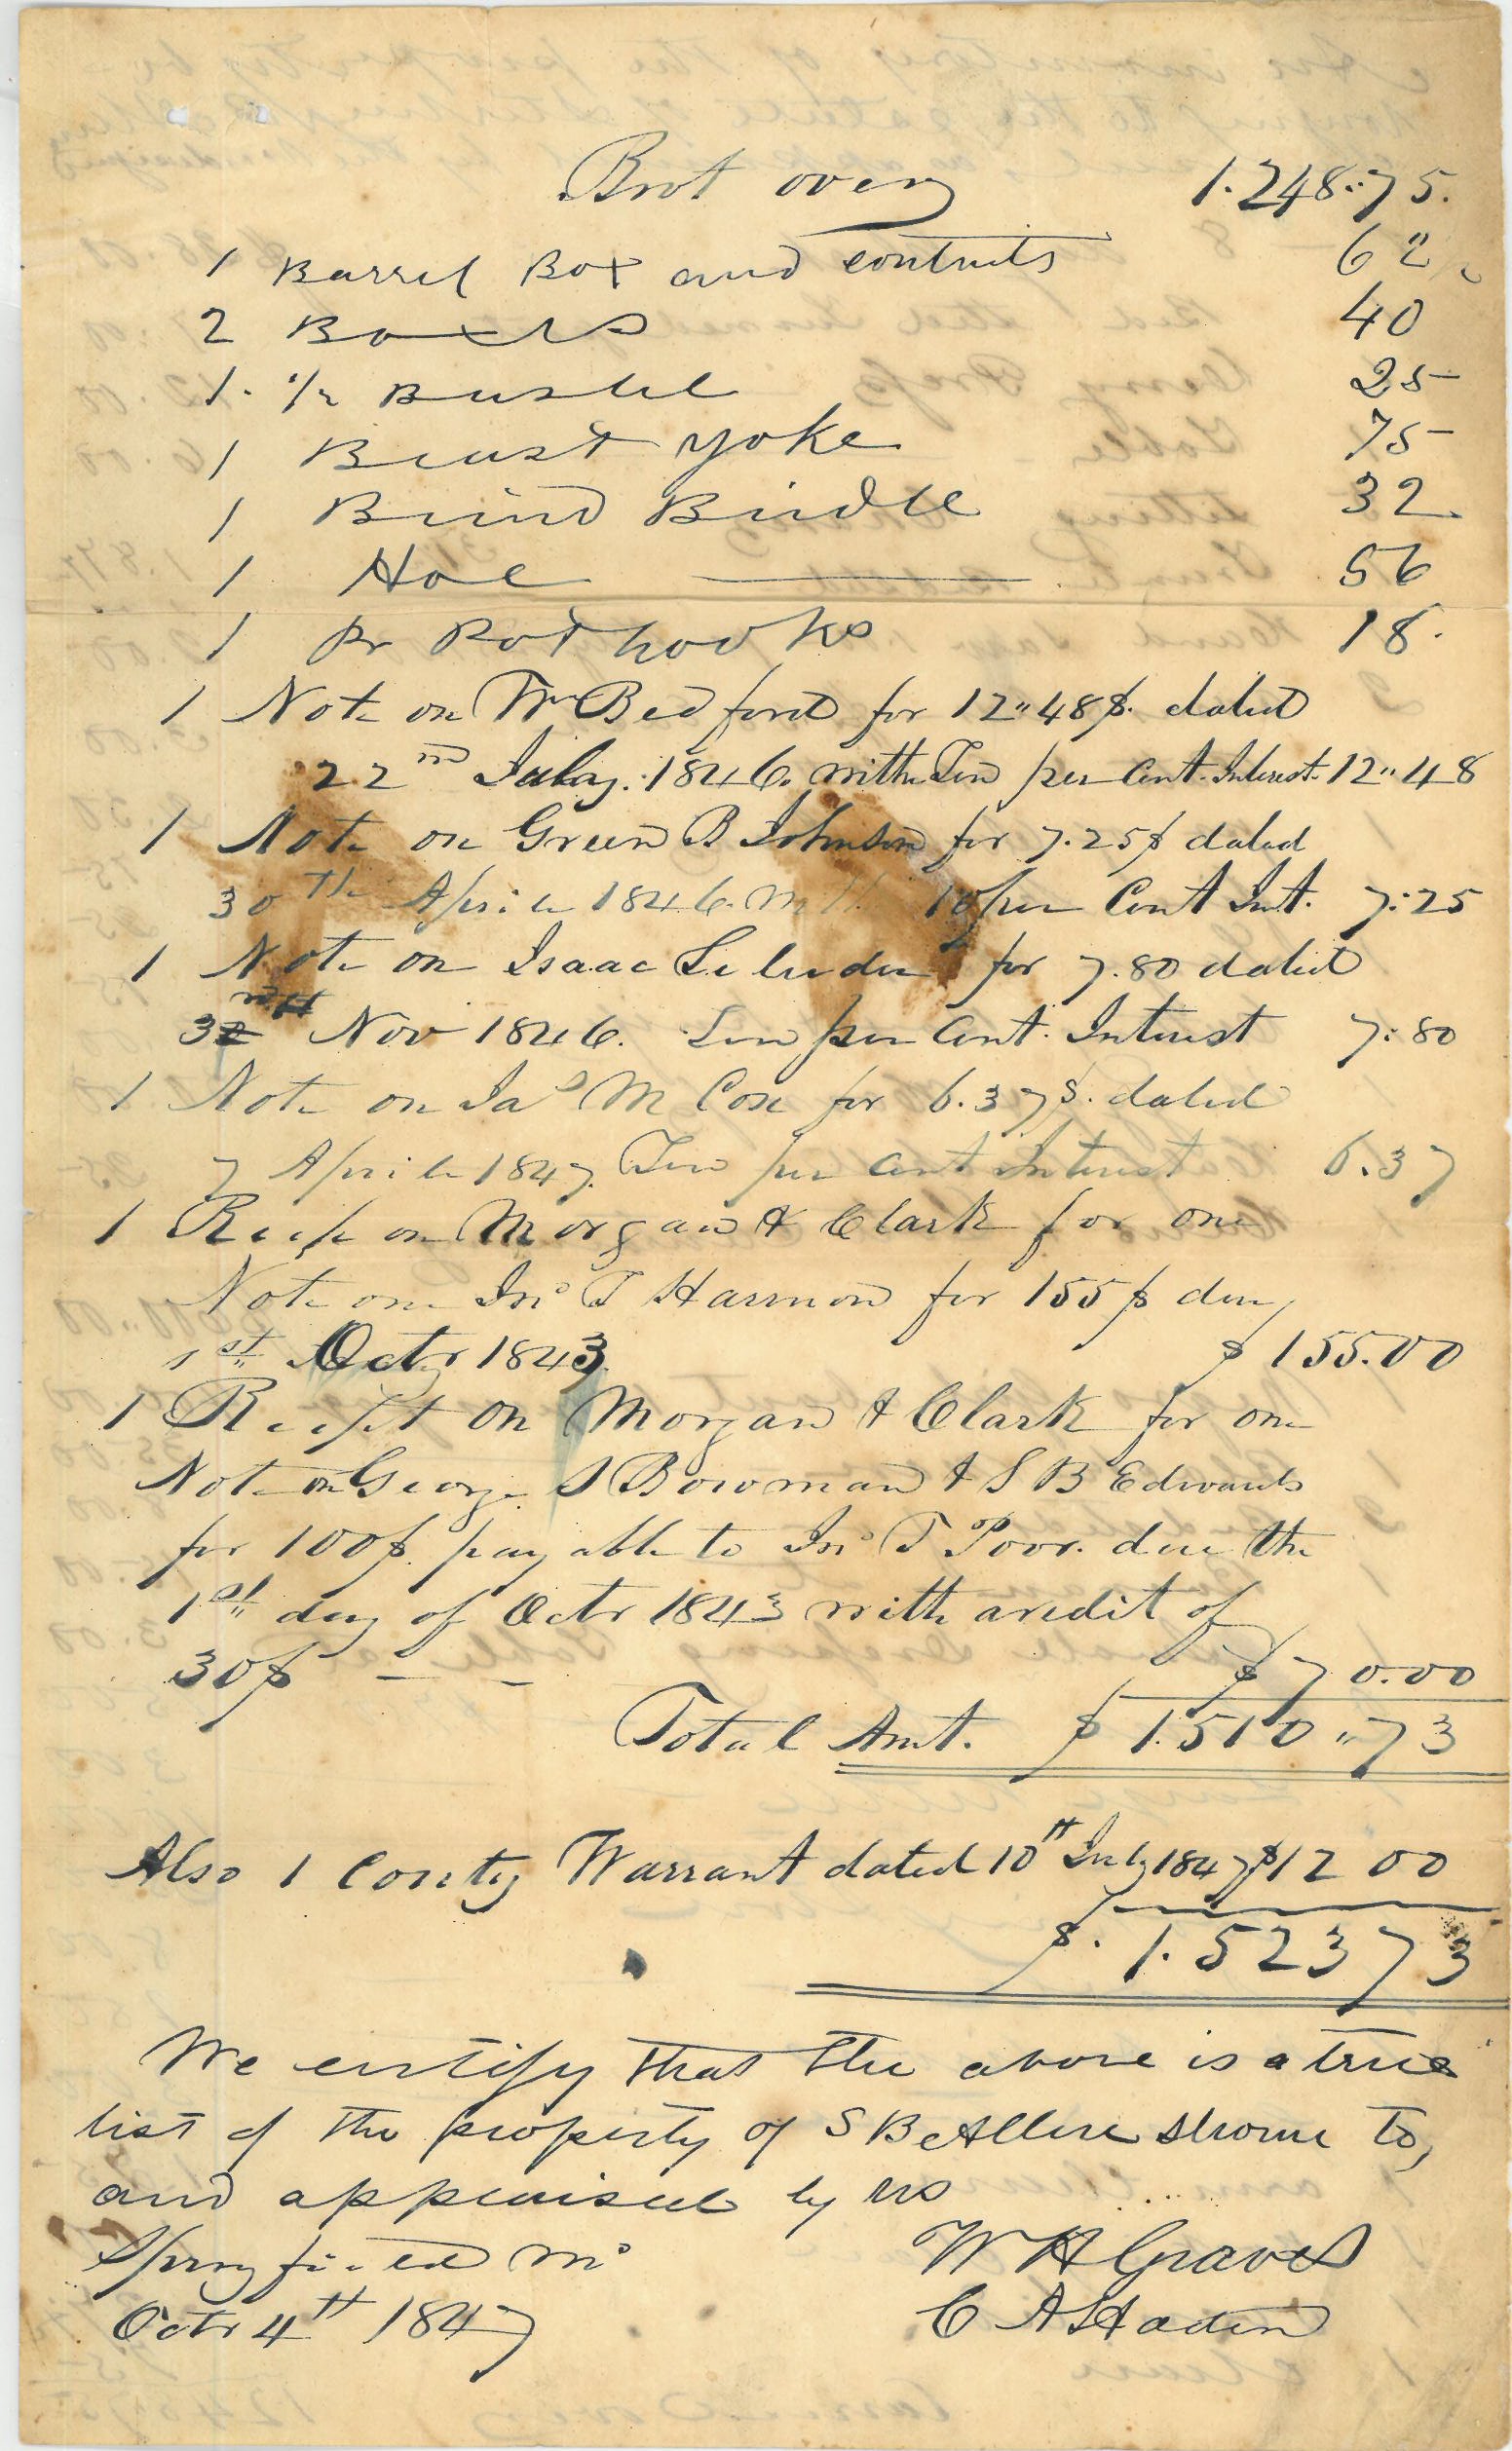 Brot over 1.248:75.
1 Barrel Box and contents 62 1/2
2 Boxes 40
1. 1/2 Bushel 25
1 Breast yoke 75
1 Blind Bridle 32
1 Hoe 56
1 Pr Pot hooks 18.
1 Note on Wm Bedford for 12"48$. dated
22nd July. 1846. with Ten per Cent. Interest. 12"48
1 Note on Green B Johnson for 7.25$ dated
30th Aprile 1846. With 10 per Cent Int. 7:25
1 Note on Isaac for 7.80 dated
3rd Nov 1846. Ten per Cent. Interest 7:80
1 Note on Jas M Cox for 6.37$. dated
7 Aprile 1847. Ten per Cent Interest 6.37
1 Recpt on Morgan & Clark for one
Note on Jno T Harmon for 155$ due
1st Octr 1843. $155.00
1 Recipt on Morgan & Clark for one
Note on George S Bowman & S B Edwards
for 100$. payable to Jno T Poor. due the
1st day of Octr 1843 with a credit of
30$ - - $70.00
Total Amt. $1.510"73
Also 1 County Warrant dated 10th July 1847 $12 00
$.1.523 73
We certify that the above is a true
list of the property of S B Allen shown to,
and appraised by us
Springfield Mo W H Graves
Octr 4th 1847 C A Haden